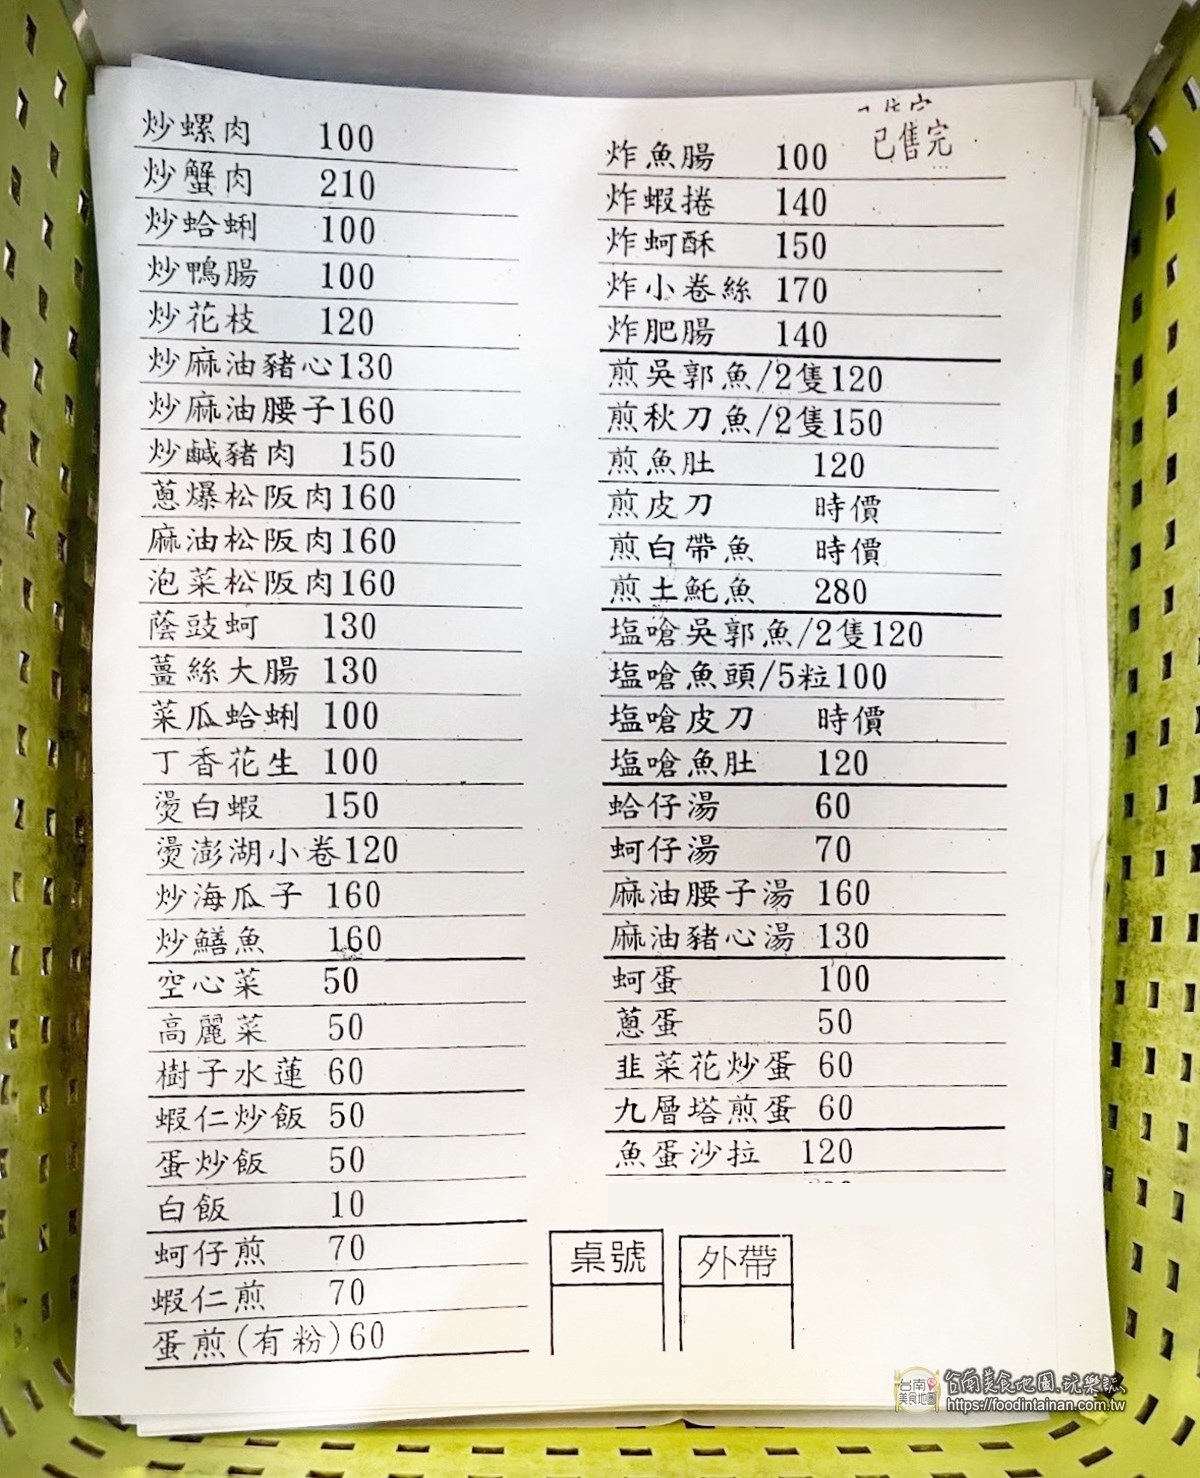 炒螺肉 100
炒蟹肉 210
炒蛤蜊 100
炒鴨腸 100
炒花枝 120
炒麻油豬心130
炒麻油腰子160
炒鹹豬肉 150
蔥爆松阪肉160
麻油松阪肉160
泡菜松阪肉160
蔭豉蚵 130
薑絲大腸 130
菜瓜蛤蜊 100
丁香花生 100
燙白蝦 150
燙澎湖小卷120
炒海瓜子 160
炒鱔魚 160
空心菜 50
高麗菜 50
樹子水蓮 60
蝦仁炒飯 50
蛋炒飯 50
白飯 10
蚵仔煎 70
蝦仁煎 70
蛋煎(有粉)60
炸魚腸 100 已售完
炸蝦捲 140
炸蚵酥 150
炸小卷絲 170
炸肥腸 140
煎吳郭魚/2隻120
煎秋刀魚/2隻150
煎魚肚 120
煎皮刀 時價
煎白帶魚 時價
煎土魠魚 280
塩嗆吳郭魚/2隻120
塩嗆魚頭/5粒100
塩嗆皮刀 時價
塩嗆魚肚 120
蛤仔湯 60
蚵仔湯 70
麻油腰子湯 160
麻油豬心湯 130
蚵蛋 100
蔥蛋 50
韭菜花炒蛋 60
九層塔煎蛋 60
魚蛋沙拉 120
桌號 外帶
台南美食地圖
台南美食地圖.玩樂誌
https://foodintainan.com.tw